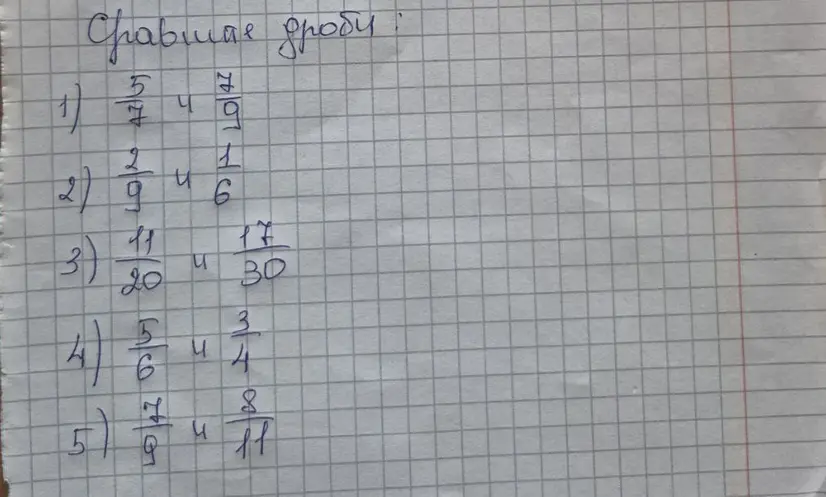 Сравните дроби:
1) 5/7 и 7/9
2) 2/9 и 1/6
3) 11/20 и 17/30
4) 5/6 и 3/4
5) 7/9 и 8/11